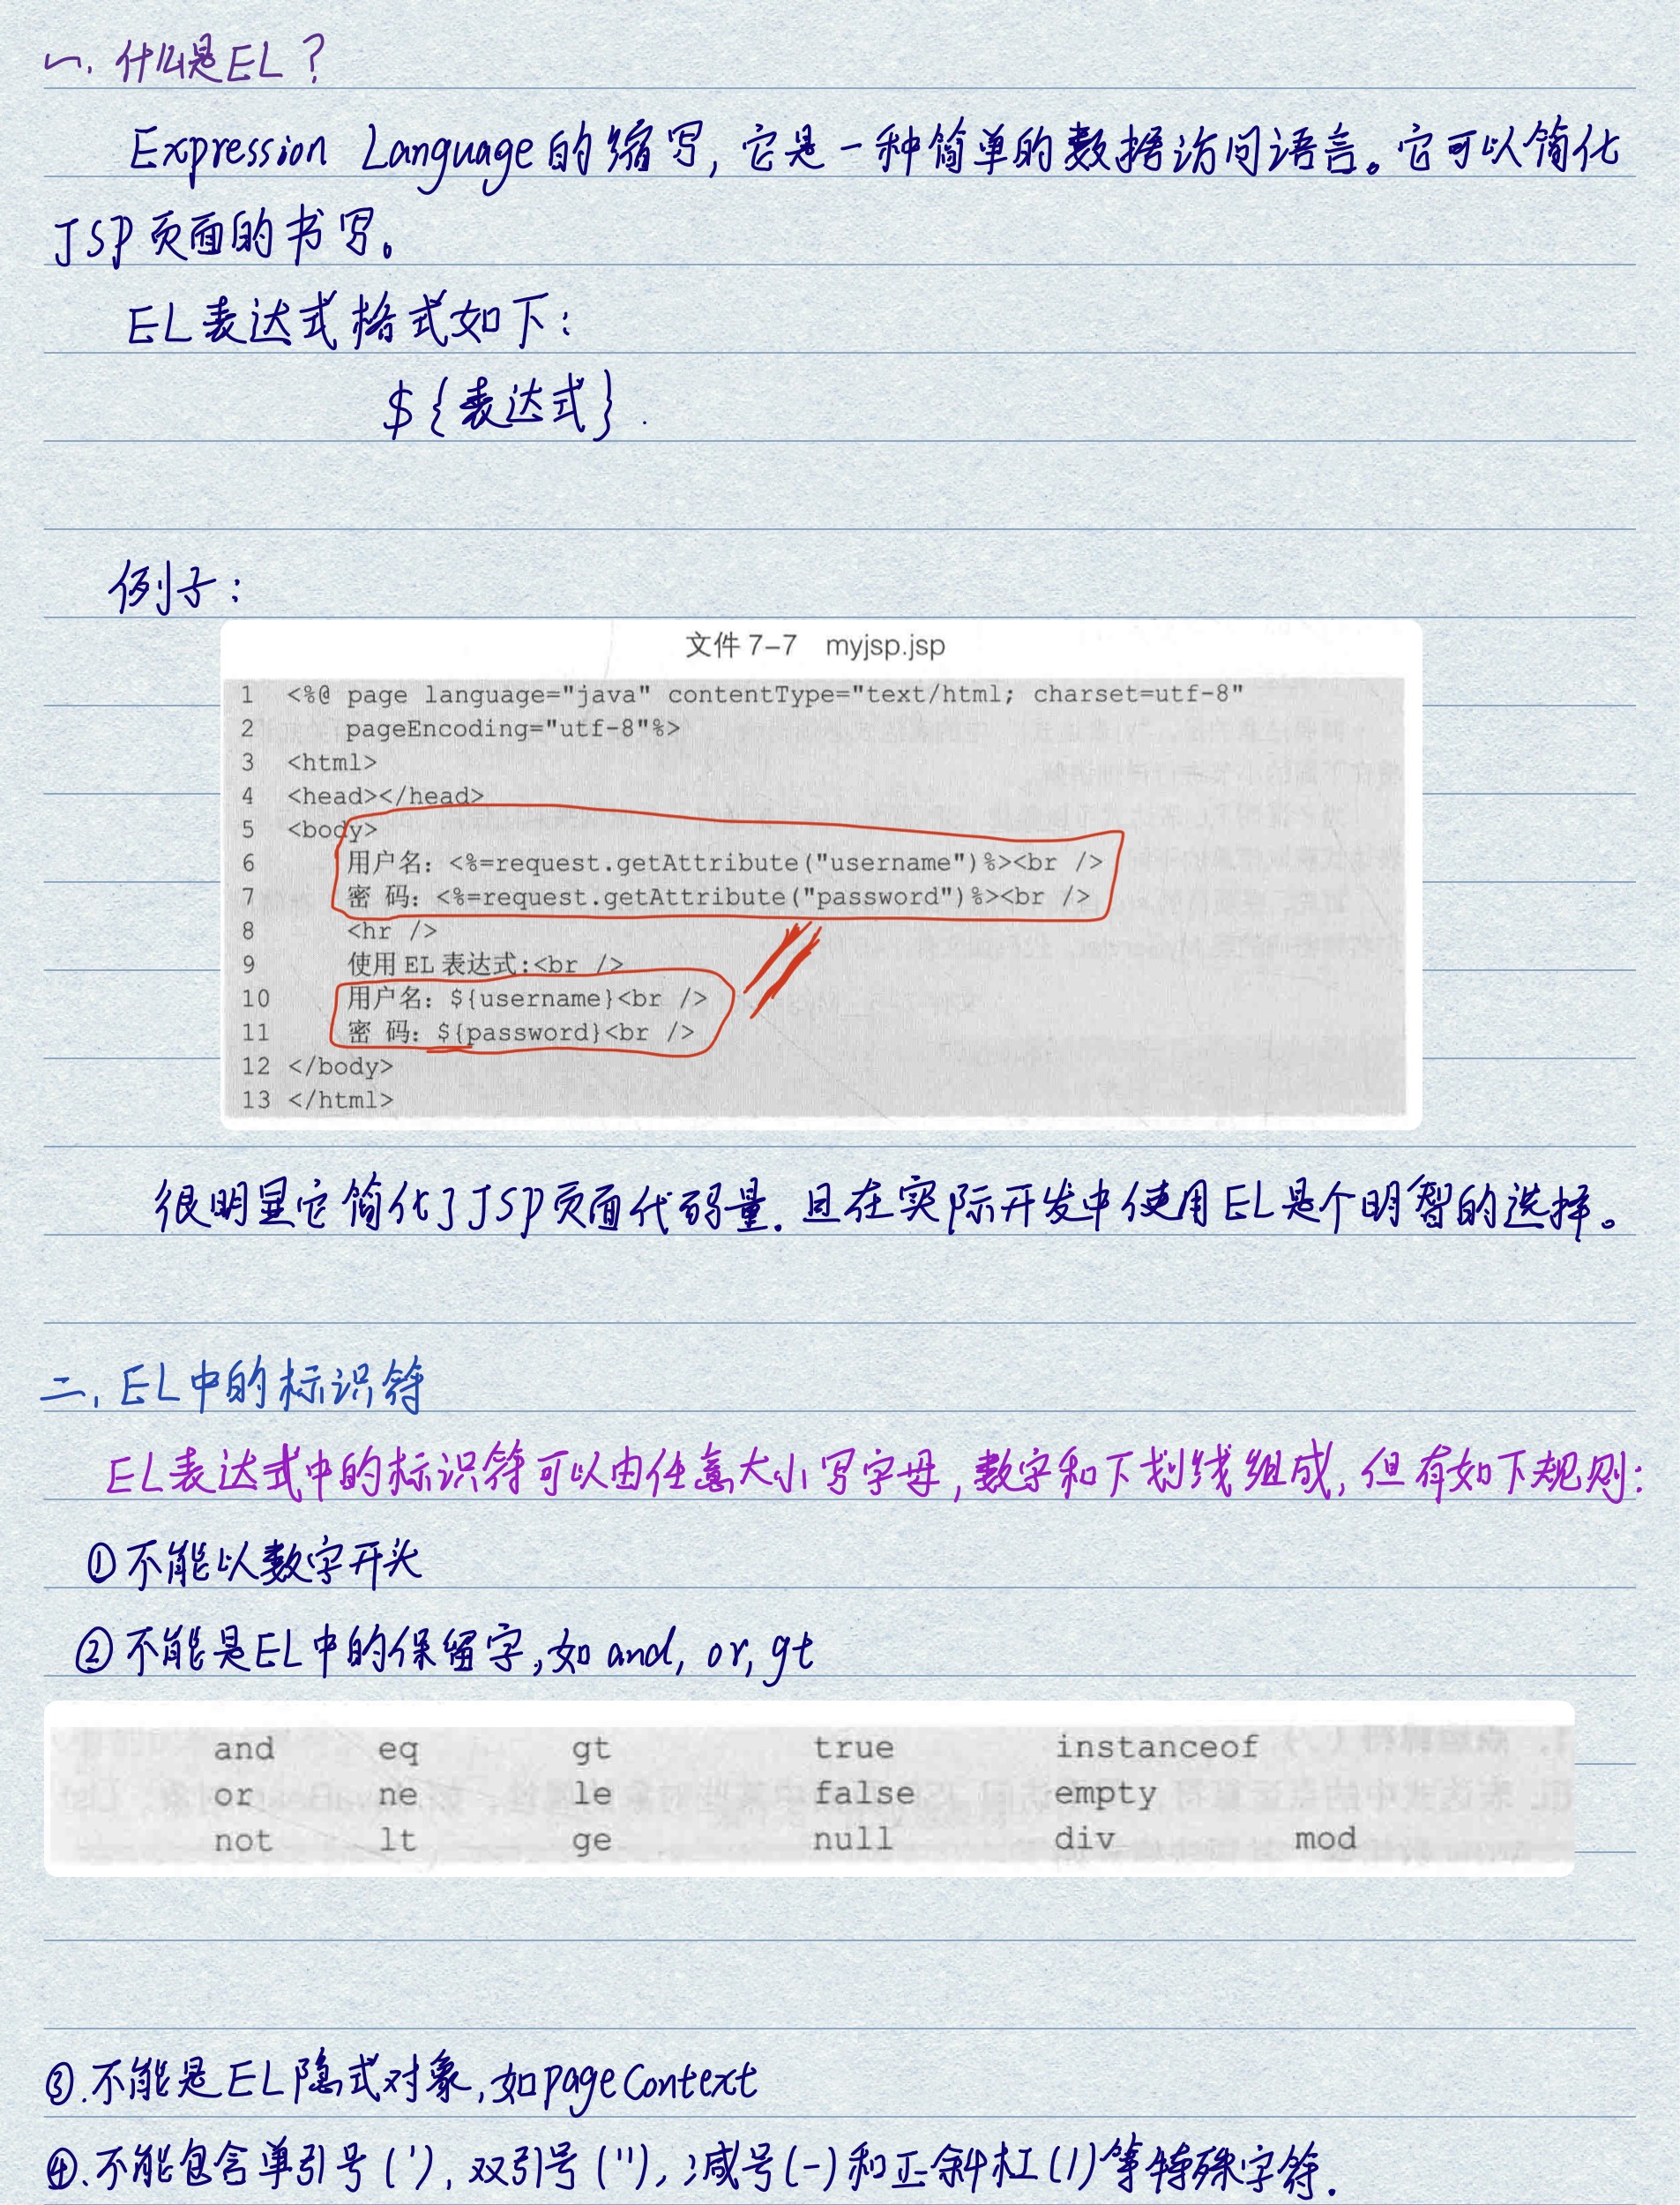 一. 什么是EL?
Expression Language的缩写, 它是一种简单的数据访问语言。它可以简化
JSP页面的书写。
EL表达式格式如下:
${表达式}.
例子:
文件 7-7 myjsp.jsp
1 <%@ page language="java" contentType="text/html; charset=utf-8"
2 pageEncoding="utf-8"%>
3 <html>
4 <head></head>
5 <body>
6 用户名: <%=request.getAttribute("username")%><br />
7 密 码: <%=request.getAttribute("password")%><br />
8 <hr />
9 使用 EL 表达式:<br />
10 用户名: ${username}<br />
11 密 码: ${password}<br />
12 </body>
13 </html>
很明显它简化了JSP页面代码量. 且在实际开发中使用EL是个明智的选择。
二, EL中的标识符
EL表达式中的标识符可以由任意大小写字母, 数字和下划线组成, 但有如下规则:
①不能以数字开头
②不能是EL中的保留字,如 and, or, gt
and eq gt true instanceof
or ne le false empty
not lt ge null div mod
③.不能是EL隐式对象,如pageContext
④.不能包含单引号('), 双引号("), 减号(-)和正斜杠(/)等特殊字符.